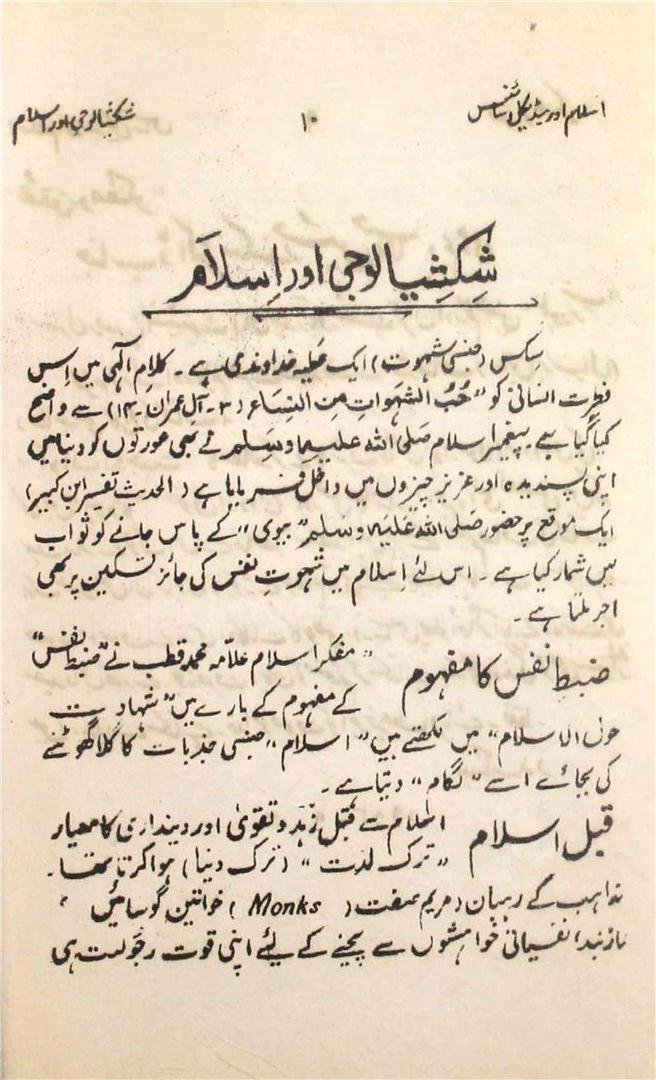 اسلام اور میڈیکل سائنس
۱۰
شکشیالوجی اور اسلام
شِکشِیالوجی اور اِسلام
سیکس (جنسی شہوت) ایک عطیہ خداوندی ہے ۔ کلامِ الٰہی میں اِس
فطرت انسانی کو "حُبُّ الشَّہَواتِ مِنَ النِّساءِ (۳۔ آلِ عمران۔ ۱۴) سے واضح
کیا گیا ہے پیغمبر اسلام صَلی اللہ علیہ وسَلم نے بھی عورتوں کو دنیا میں
اپنی پسندیدہ اور عزیز چیزوں میں داخل فرمایا ہے (الحدیث تفسیر ابن کبیر)
ایک موقع پر حضور صَلی اللہ عَلیہ وسَلم "بیوی" کے پاس جانے کو ثواب
میں شمار کیا ہے ۔ اس لئے اِسلام میں شہوتِ نفس کی جائز تسکین پر بھی
اجر ملتا ہے ۔
ضبطِ نفس کا مفہوم
"مفکر اسلام علامہ محمد قطب نے "ضبط نفس"
کے مفہوم کے بارے میں "شہادت
حول الاسلام" میں لکھتے ہیں "اسلام" جنسی جذبات کا گلا گھونٹنے
کی بجائے اسے "لگام" دیتا ہے ۔
قبل اسلام
اسلام سے قبل زہد و تقویٰ اور دینداری کا معیار
"ترک لذت" (ترک دنیا) ہوا کرتا تھا ۔
مذاہب کے رہبان (مریم صفت (Monks) خواتین گوسائیں،
نفسیاتی خواہشوں سے بچنے کے لئے اپنی قوت رجولیت ہی